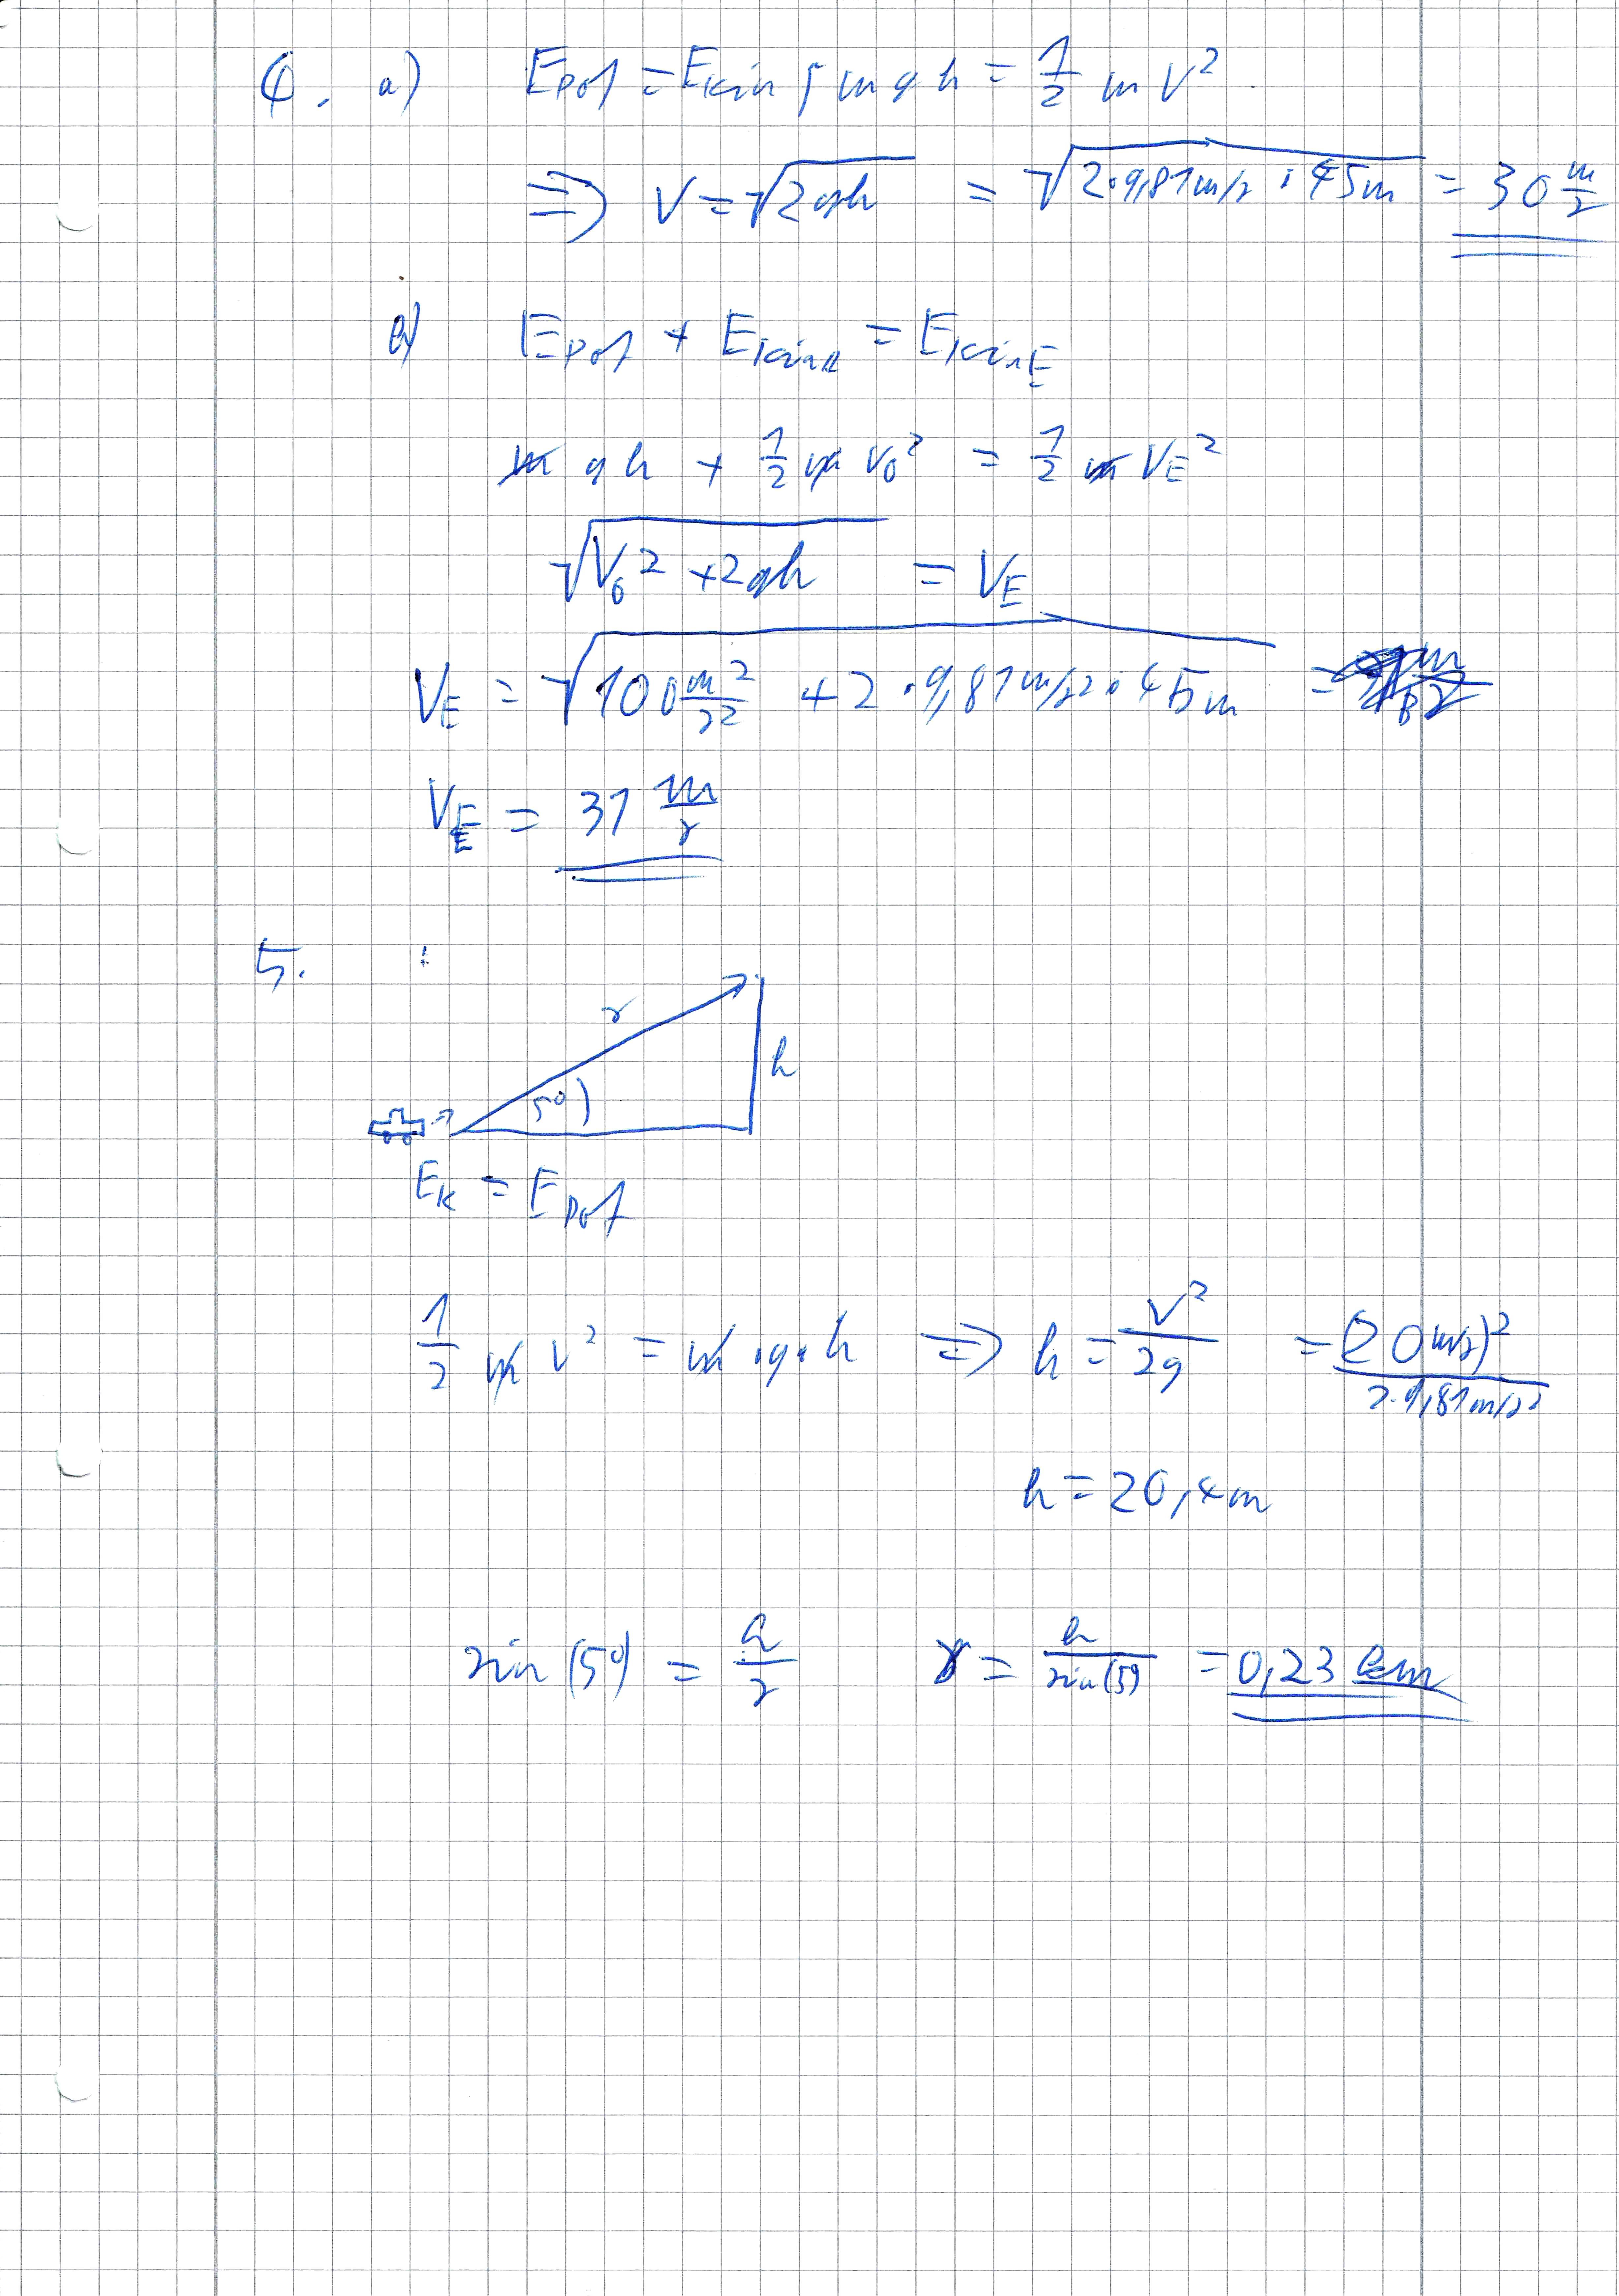 4. a) E_pot = E_kin ; m g h = 1/2 m v²
⇒ v = √(2gh) = √(2·9,81m/s · 45m) = 30 m/s
b) E_pot + E_kinA = E_kinE
m g h + 1/2 m v₀² = 1/2 m v_E²
√(v₀² + 2gh) = v_E
v_E = √(100 m²/s² + 2·9,81m/s²·45m) =
v_E = 31 m/s
5.
s
h
5°
E_K = E_pot
1/2 m v² = m·g·h ⇒ h = v²/2g = (20 m/s)²/2·9,81m/s²
h = 20,4m
sin(5°) = h/s s = h/sin(5°) = 0,23 km